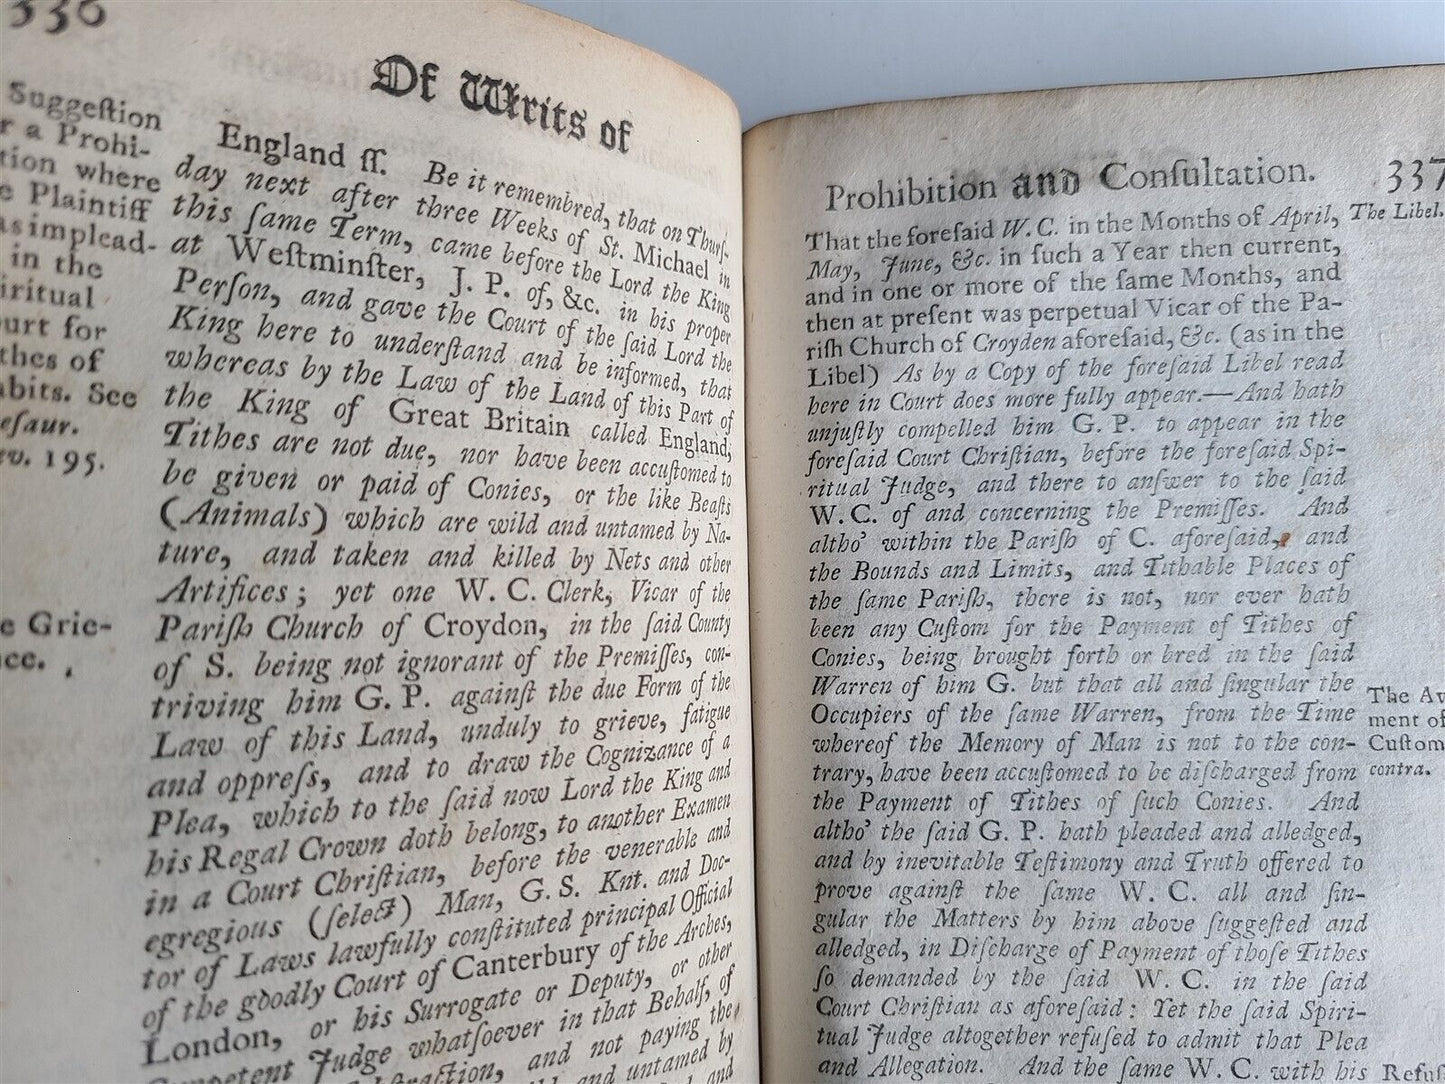 336
Of Writs of
Suggeſtion
r a Prohi-
tion where
e Plaintiff
as implead-
in the
iritual
urt for
thes of
abbits. See
eſaur.
ev. 195.
England ſſ. Be it remembred, that on Thurſ-
day next after three Weeks of St. Michael in
this ſame Term, came before the Lord the King
at Weſtminſter, J. P. of, &c. in his proper
Perſon, and gave the Court of the ſaid Lord the
King here to underſtand and be informed, that
whereas by the Law of the Land of this Part of
the King of Great Britain called England,
Tithes are not due, nor have been accuſtomed to
be given or paid of Conies, or the like Beaſts
(Animals) which are wild and untamed by Na-
ture, and taken and killed by Nets and other
Artifices; yet one W. C. Clerk, Vicar of the
Pariſh Church of Croydon, in the ſaid County
of S. being not ignorant of the Premiſſes, con-
triving him G. P. againſt the due Form of the
Law of this Land, unduly to grieve, fatigue
and oppreſs, and to draw the Cognizance of a
Plea, which to the ſaid now Lord the King and
his Regal Crown doth belong, to another Examen
in a Court Chriſtian, before the venerable and
egregious (ſelect) Man, G. S. Knt. and Doc-
tor of Laws lawfully conſtituted principal Official
of the goodly Court of Canterbury of the Arches,
London, or his Surrogate or Deputy, or other
Competent Judge whatſoever in that Behalf, of
and not paying the
and untamed by
and
e Grie-
nce.
Prohibition and Conſultation. 337
That the foreſaid W. C. in the Months of April,
May, June, &c. in ſuch a Year then current,
and in one or more of the ſame Months, and
then at preſent was perpetual Vicar of the Pa-
riſh Church of Croyden aforeſaid, &c. (as in the
Libel) As by a Copy of the foreſaid Libel read
here in Court does more fully appear.—And hath
unjuſtly compelled him G. P. to appear in the
foreſaid Court Chriſtian, before the foreſaid Spi-
ritual Judge, and there to anſwer to the ſaid
W. C. of and concerning the Premiſſes. And
altho' within the Pariſh of C. aforeſaid, and
the Bounds and Limits, and Tithable Places of
the ſame Pariſh, there is not, nor ever hath
been any Cuſtom for the Payment of Tithes of
Conies, being brought forth or bred in the ſaid
Warren of him G. but that all and ſingular the
Occupiers of the ſame Warren, from the Time
whereof the Memory of Man is not to the con-
trary, have been accuſtomed to be diſcharged from
the Payment of Tithes of ſuch Conies. And
altho' the ſaid G. P. hath pleaded and alledged,
and by inevitable Teſtimony and Truth offered to
prove againſt the ſame W. C. all and ſin-
gular the Matters by him above ſuggeſted and
alledged, in Diſcharge of Payment of thoſe Tithes
ſo demanded by the ſaid W. C. in the ſaid
Court Chriſtian as aforeſaid: Yet the ſaid Spiri-
tual Judge altogether refuſed to admit that Plea
and Allegation. And the ſame W. C. with his
The Libel.
The Av
ment of
Cuſtom
contra.
Refuſ